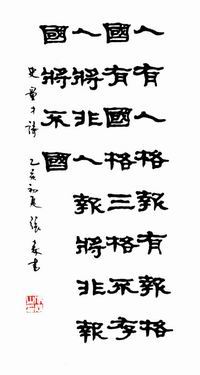 人有人格報有報格
國有國格三格不存
人將非人報將非報
國將不國
史量才語 乙亥初夏 張森書